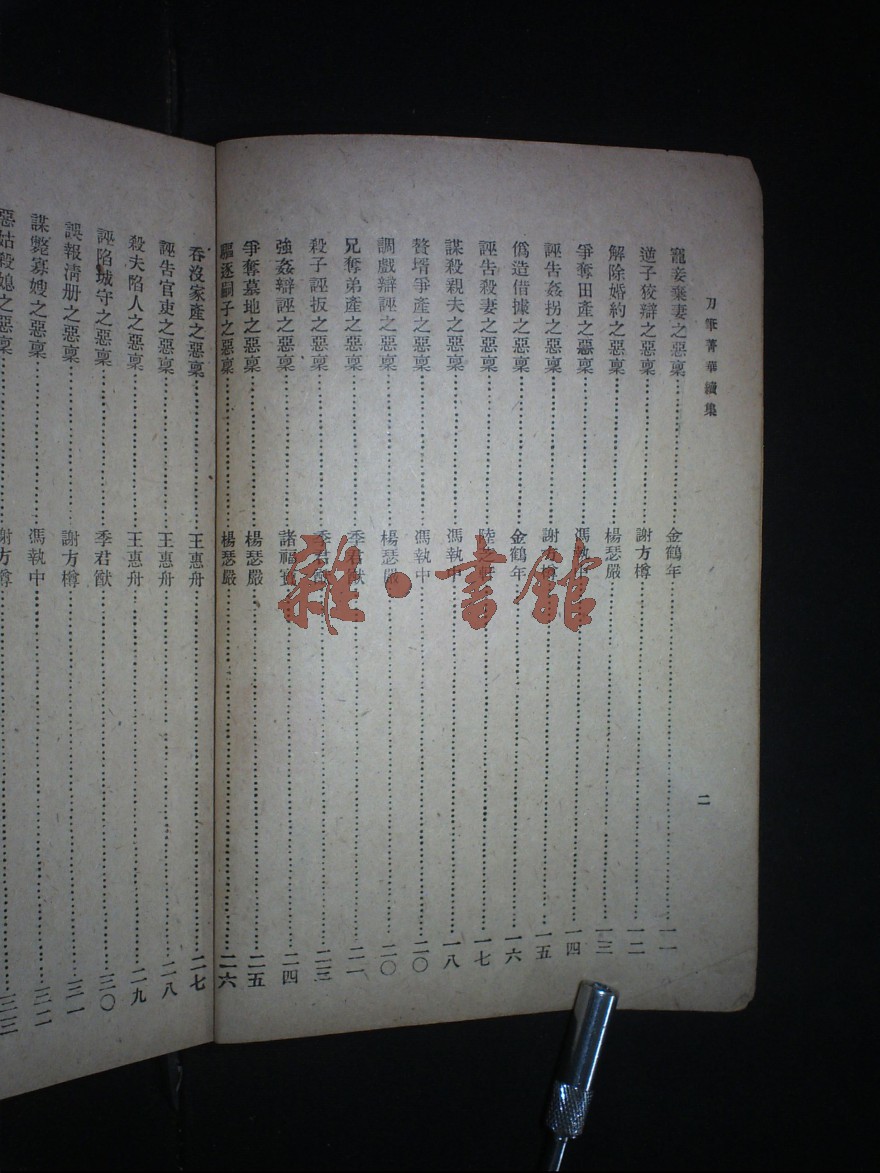 刀筆菁華續集
二
寵妾棄妻之惡稟……金鶴年……一一
逆子狡辯之惡稟……謝方樽……一二
解除婚約之惡稟……楊瑟嚴……一三
爭奪田產之惡稟……馮執中……一四
誣告姦拐之惡稟……謝方樽……一五
僞造借據之惡稟……金鶴年……一六
誣告殺妻之惡稟……陸……一七
謀殺親夫之惡稟……馮執中……一八
贅壻爭產之惡稟……馮執中……二〇
調戲辯誣之惡稟……楊瑟嚴……二〇
兄奪弟產之惡稟……季君猷……二一
殺子誣扳之惡稟……季君猷……二三
強姦辯誣之惡稟……諸福寶……二四
爭奪墓地之惡稟……楊瑟嚴……二五
驅逐嗣子之惡稟……楊瑟嚴……二六
吞沒家產之惡稟……王惠舟……二七
誣告官吏之惡稟……王惠舟……二八
殺夫陷人之惡稟……王惠舟……二九
誣陷城守之惡稟……季君猷……三〇
誤報清册之惡稟……謝方樽……三一
謀斃寡嫂之惡稟……馮執中……三二
惡姑殺媳之惡稟……謝方樽……三三
雜·書館